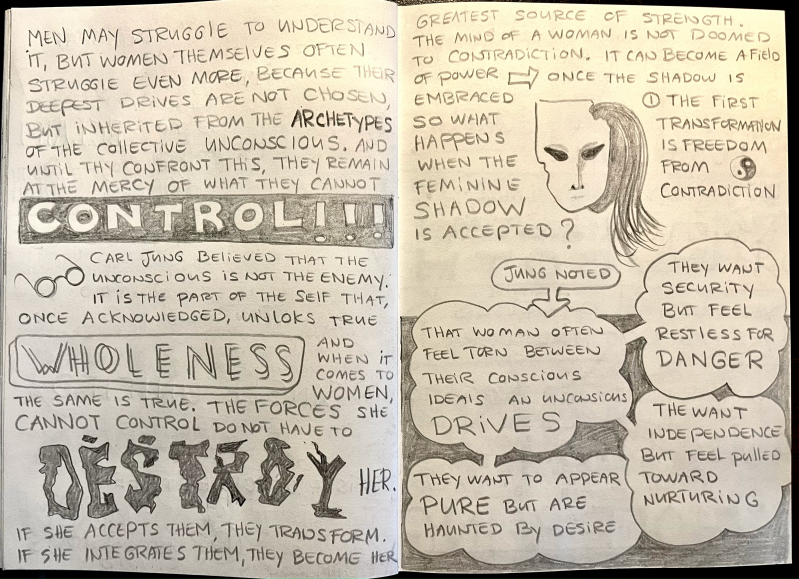 MEN MAY STRUGGLE TO UNDERSTAND
IT, BUT WOMEN THEMSELVES OFTEN
STRUGGLE EVEN MORE, BECAUSE THEIR
DEEPEST DRIVES ARE NOT CHOSEN,
BUT INHERITED FROM THE ARCHETYPES
OF THE COLLECTIVE UNCONSCIOUS. AND
UNTIL THY CONFRONT THIS, THEY REMAIN
AT THE MERCY OF WHAT THEY CANNOT
CONTROL!!!
CARL JUNG BELIEVED THAT THE
UNCONSCIOUS IS NOT THE ENEMY.
IT IS THE PART OF THE SELF THAT,
ONCE ACKNOWLEDGED, UNLOKS TRUE
WHOLENESS
AND
WHEN IT
COMES TO
WOMEN,
THE SAME IS TRUE. THE FORCES SHE
CANNOT CONTROL DO NOT HAVE TO
DESTROY HER.
IF SHE ACCEPTS THEM, THEY TRANSFORM.
IF SHE INTEGRATES THEM, THEY BECOME HER
GREATEST SOURCE OF STRENGTH.
THE MIND OF A WOMAN IS NOT DOOMED
TO CONTRADICTION. IT CAN BECOME A FIELD
OF POWER ONCE THE SHADOW IS
EMBRACED
SO WHAT
HAPPENS
WHEN THE
FEMININE
SHADOW
IS ACCEPTED?
① THE FIRST
TRANSFORMATION
IS FREEDOM
FROM
CONTRADICTION
JUNG NOTED
THAT WOMAN OFTEN
FEEL TORN BETWEEN
THEIR CONSCIOUS
IDEAlS AN UNCONSIOUS
DRiVES
THEY WANT
SECURITY
BUT FEEL
RESTLESS FOR
DANGER
THEY WANT TO APPEAR
PURE BUT ARE
HAUNTED BY DESIRE
THE WANT
INDEPENDENCE
BUT FEEL pulled
TOWARD
NURTURING